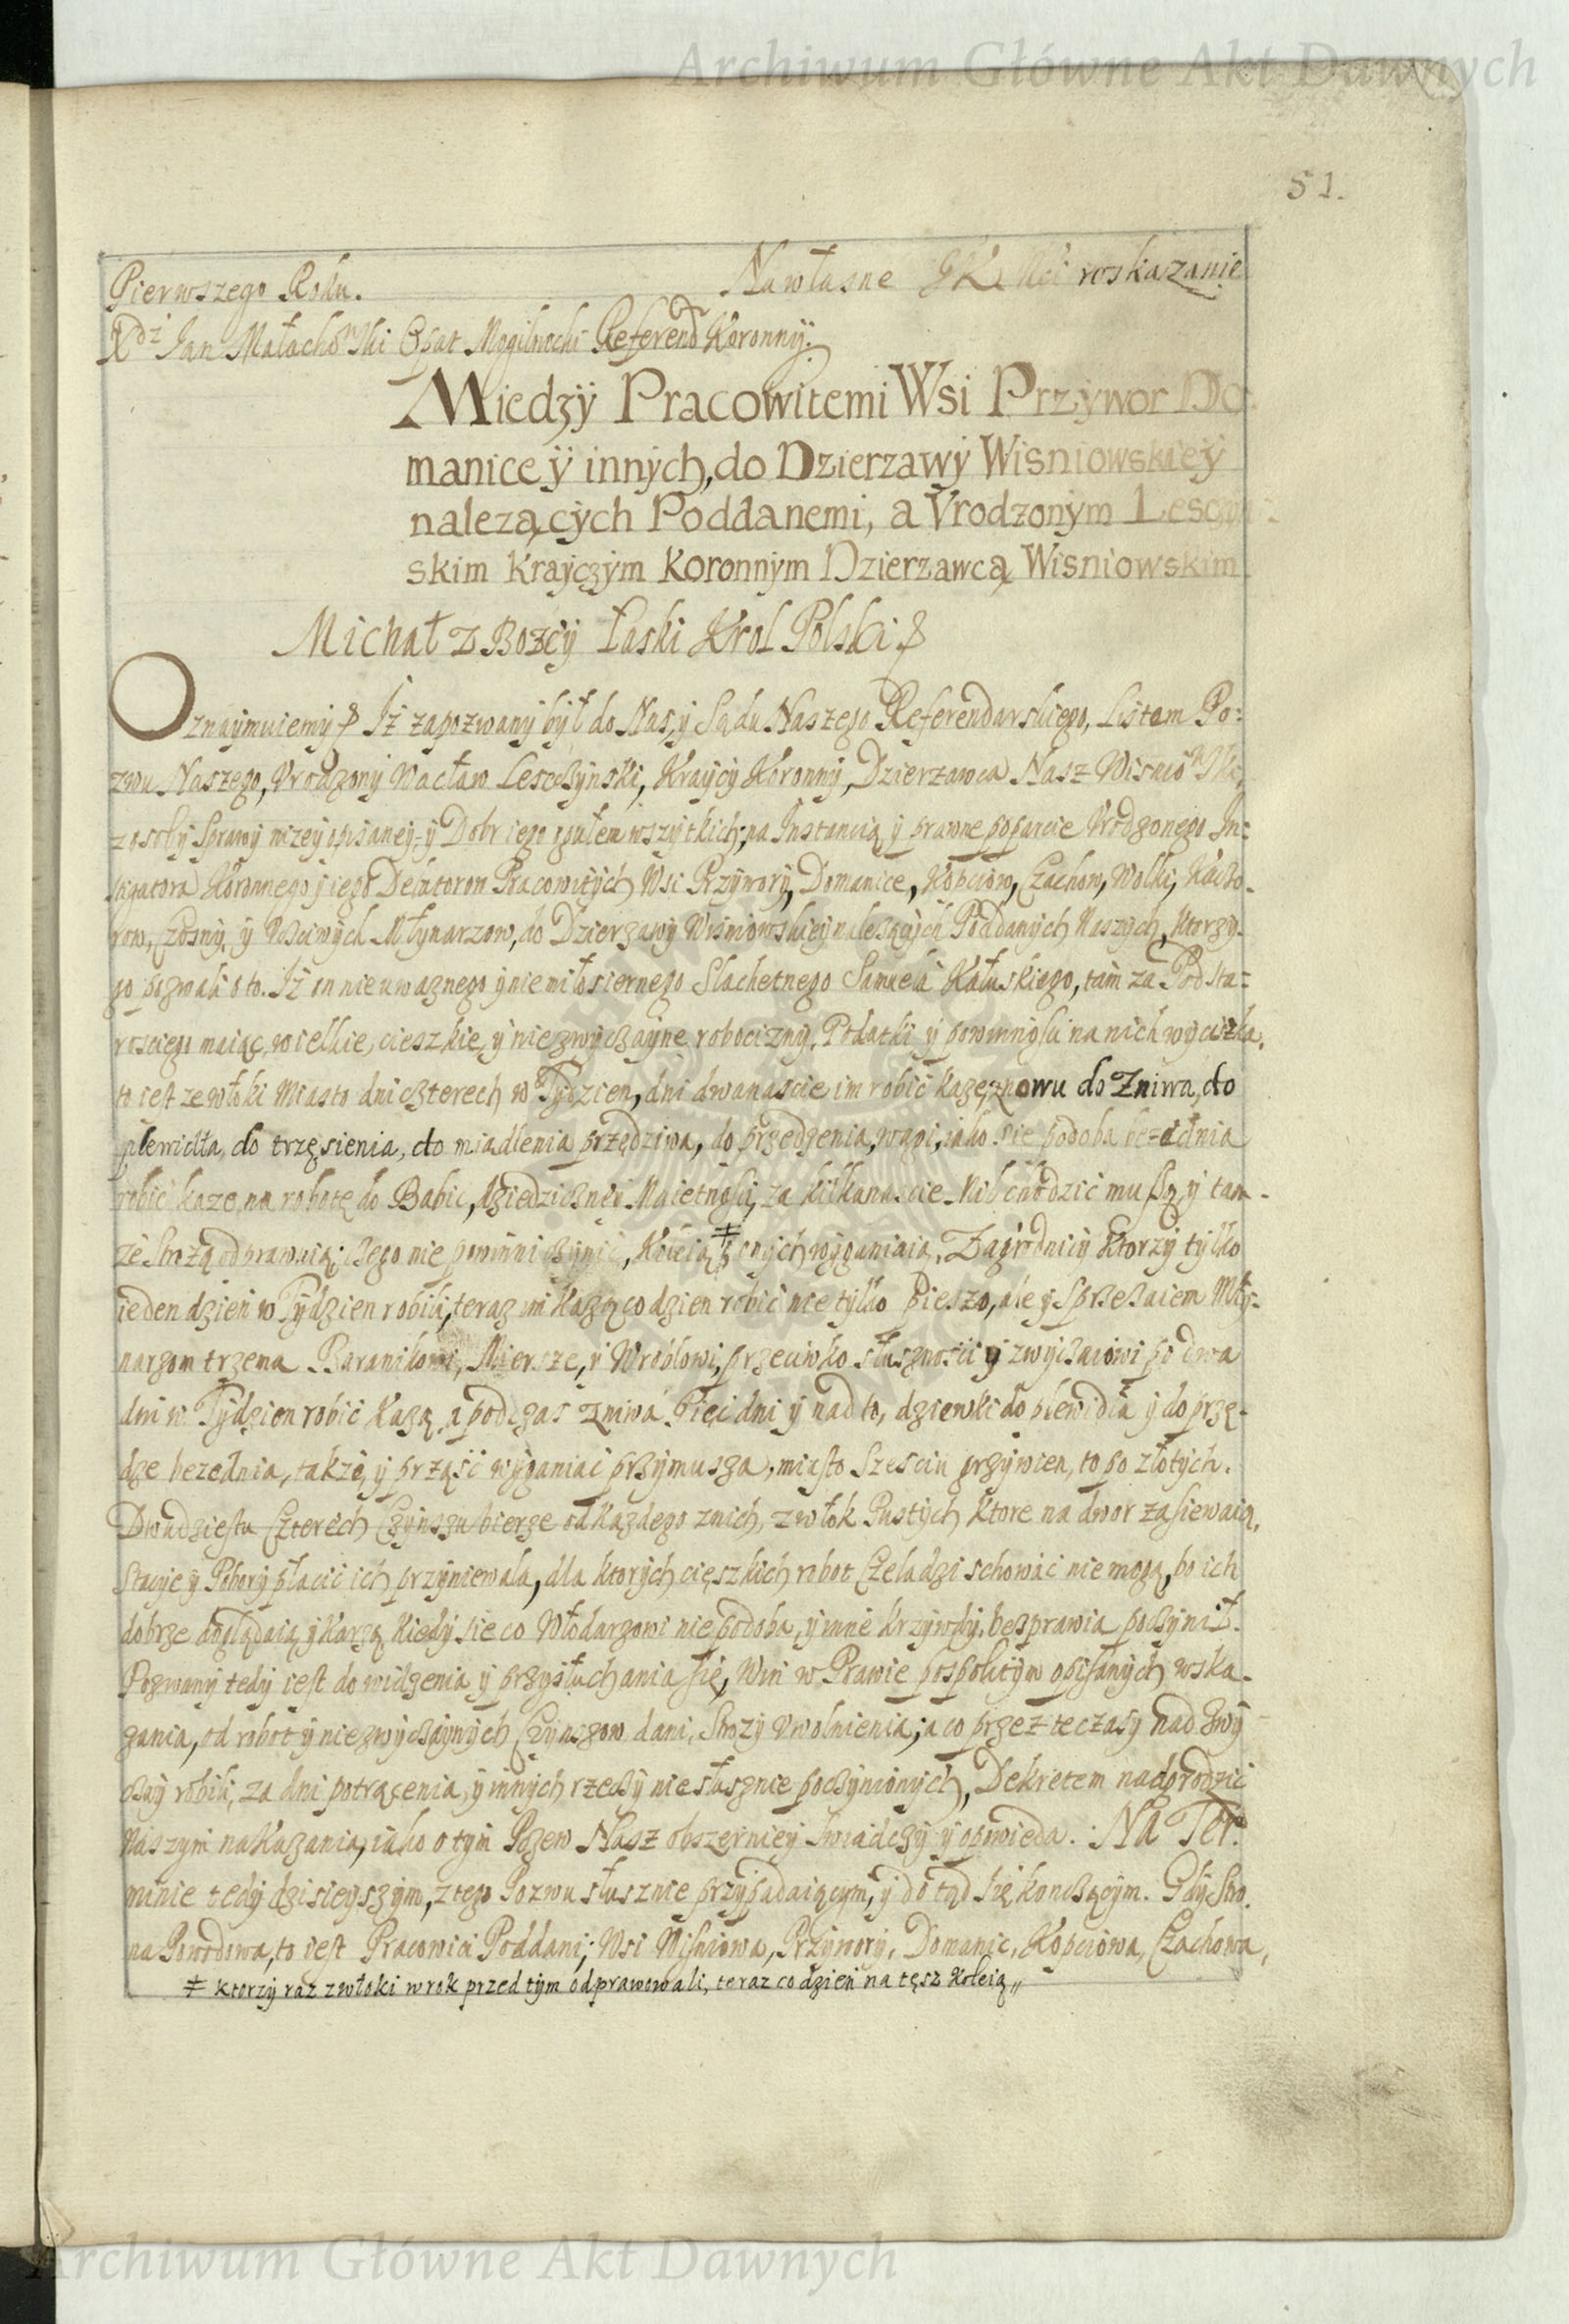 Archiwum Główne Akt Dawnych
51.
Pierwszego Roku. Na własne JKMci roskazanie
Xdz Jan Małachowski Opat Mogilnocki Referend Koronnÿ.
Miedzÿ Pracowitemi Wsi Przÿwor Do
manice ÿ innÿch, do Dzierzawÿ Wisniowskieÿ
nalezącÿch Poddanemi, a Vrodzonÿm Lesczn
skim Kraÿczÿm Koronnÿm Dzierzawcą Wisniowskim
Michał z Bozeÿ Łaski Krol Polski
Oznaÿmuiemÿ Iż zapozwanÿ bÿł do Nas, ÿ Sądu Naszego Referendarskiego, Listem Po:
zwu Naszego, Vrodzonÿ Wacław Lesczÿnski, Kraÿcÿ Koronnÿ, Dzierzawca Nasz Wisniowski,
z osobÿ Sprawÿ nizeÿ opisaneÿ, ÿ Dobr iego ogułem wszÿtkich, na Instancią ÿ prawne poparcie Vrodzonego In:
stigatora Koronnego ÿ iego Delatorow Pracowitÿch Wsi Przÿworÿ, Domanice, Kopciow, Czachow, Wolki, Kaczo-
row, Czosnÿ, ÿ Vczciwÿch Młÿnarzow, do Dzierzawÿ Wisniowskieÿ nalezącÿch Poddanÿch Naszÿch, ktorzÿ
go pozwali o to. Iż on nieuwaznego ÿ niemiłosiernego Slachetnego Samuela Kałuskiego, tam za Podsta:
rosciego maiąc, wielkie, cieszkie, ÿ niezwÿczaÿne robociznÿ, Podatki ÿ powinnosci na nich wÿciska,
to iest ze włoki Miasto dni czterech w Tÿdzien, dni dwanascie im robic kazę, znowu do Zniwa, do
plewidła, do trzęsienia, do miądlenia przędziwa, do przedzenia, wapi, iako sie podoba bezednia
robic kaze, na robotę do Babic, dziedziczneÿ Maietnosci, za kilkanascie Mil chodzic muszą, ÿ tam-
że Strożą odprawuią; czego nie powinni czÿnic, Koleią ≠ z onÿch wÿganiaią, Zagrodnicÿ ktorzÿ tÿlko
ieden dzien w Tÿdzien robili, teraz im kazą co dzien robic nie tÿlko pieszo, ale ÿ sprzezaiem Młÿ-
narzom trzema Baranikowi, Mierzze, ÿ Wroblowi, przeciwko słusznosci ÿ zwÿczaiowi po dwa
dni w Tÿdzien robic kazą, a podczas zniwa pięci dni ÿ nad to, dziewki do plewidła ÿ do przę-
dze bezednia, takze ÿ prząsc wÿganiac przÿmusza, miasto Szesciu grzÿwien, to po złotÿch
Dwudziestu Czterech Czÿnszu bierze od kazdego z nich, z włok Pustÿch ktore na dwor zasiewaią,
Stacÿe ÿ Poborÿ płacic ich przÿniewala, dla ktorÿch cięszkich robot Czeladzi schowac nie mogą, bo ich
dobrze doglądaią ÿ karzą kiedÿ sie co Włodarzowi nie podoba, ÿ inne krzÿwdÿ, bezprawia poczÿnił.
Pozwanÿ tedÿ iest do widzenia ÿ przÿsłuchania się, Win w Prawie pospolitÿm opisanÿch wska-
zania, od robot ÿ niezwÿczaÿnÿch Czÿnszow dani, Strozÿ Vwolnienia; a co przez te czasÿ nad zwÿ-
czaÿ robili, za dni potrącenia, ÿ innÿch rzeczÿ niesłusznie poczÿnionÿch, Dekretem nadgrodzic
Naszÿm nakazania, iako o tÿm Pozew Nasz obszerniey swiadczÿ ÿ opowieda. Na Ter-
minie tedÿ dzisieÿszÿm, z tego Pozwu słusznie przÿpadaiącÿm, ÿ do tąd się konczącÿm. Gdÿ Stro-
na Powodowa, to iest Pracowici Poddani; Wsi Wisniowa, Przÿworÿ, Domanic, Kopciowa, Czachowa,
≠ ktorzÿ raz z włoki w rok przed tÿm odprawowali, teraz co dzień na tęsz koleią „
Archiwum Główne Akt Dawnych